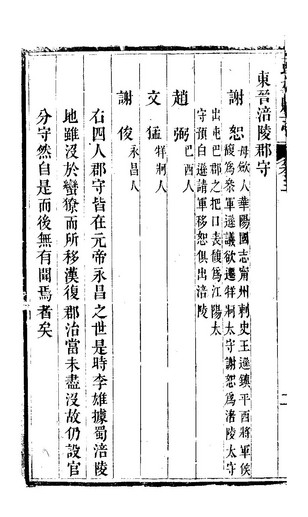 東晉涪陵郡守
謝恕 毋歛人華陽國志甯州刺史王遜鎮平西將軍侯
馥爲叅軍遜議欲遷牂牁太守謝恕爲涪陵太守
出屯巴郡之把口表馥爲江陽太
守預白遜請軍移恕俱出涪陵
趙弼 巴西人
文猛 牂牁人
謝俊 永昌人
右四人郡守皆在元帝永昌之世是時李雄據蜀涪陵
地雖沒於蠻獠而所移漢復郡治當未盡沒故仍設官
分守然自是而後無有聞焉者矣